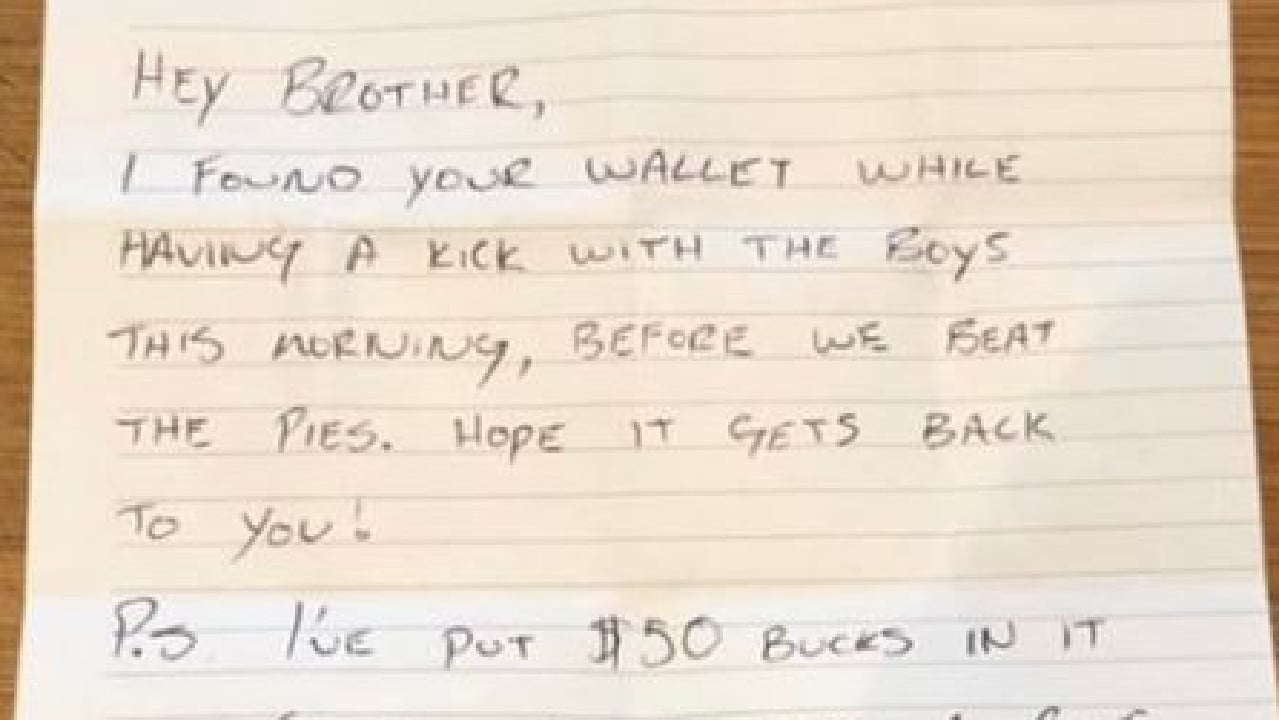 HEY BROTHER,
I FOUND YOUR WALLET WHILE
HAVING A KICK WITH THE BOYS
THIS MORNING, BEFORE WE BEAT
THE PIES. HOPE IT GETS BACK
TO YOU!
P.S I'VE PUT $50 BUCKS IN IT